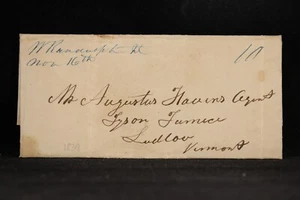 W Randolph Vt
Nov 16th
10
Mr Augustus Havens Agent
Tyson Furnace
Ludlow
Vermont